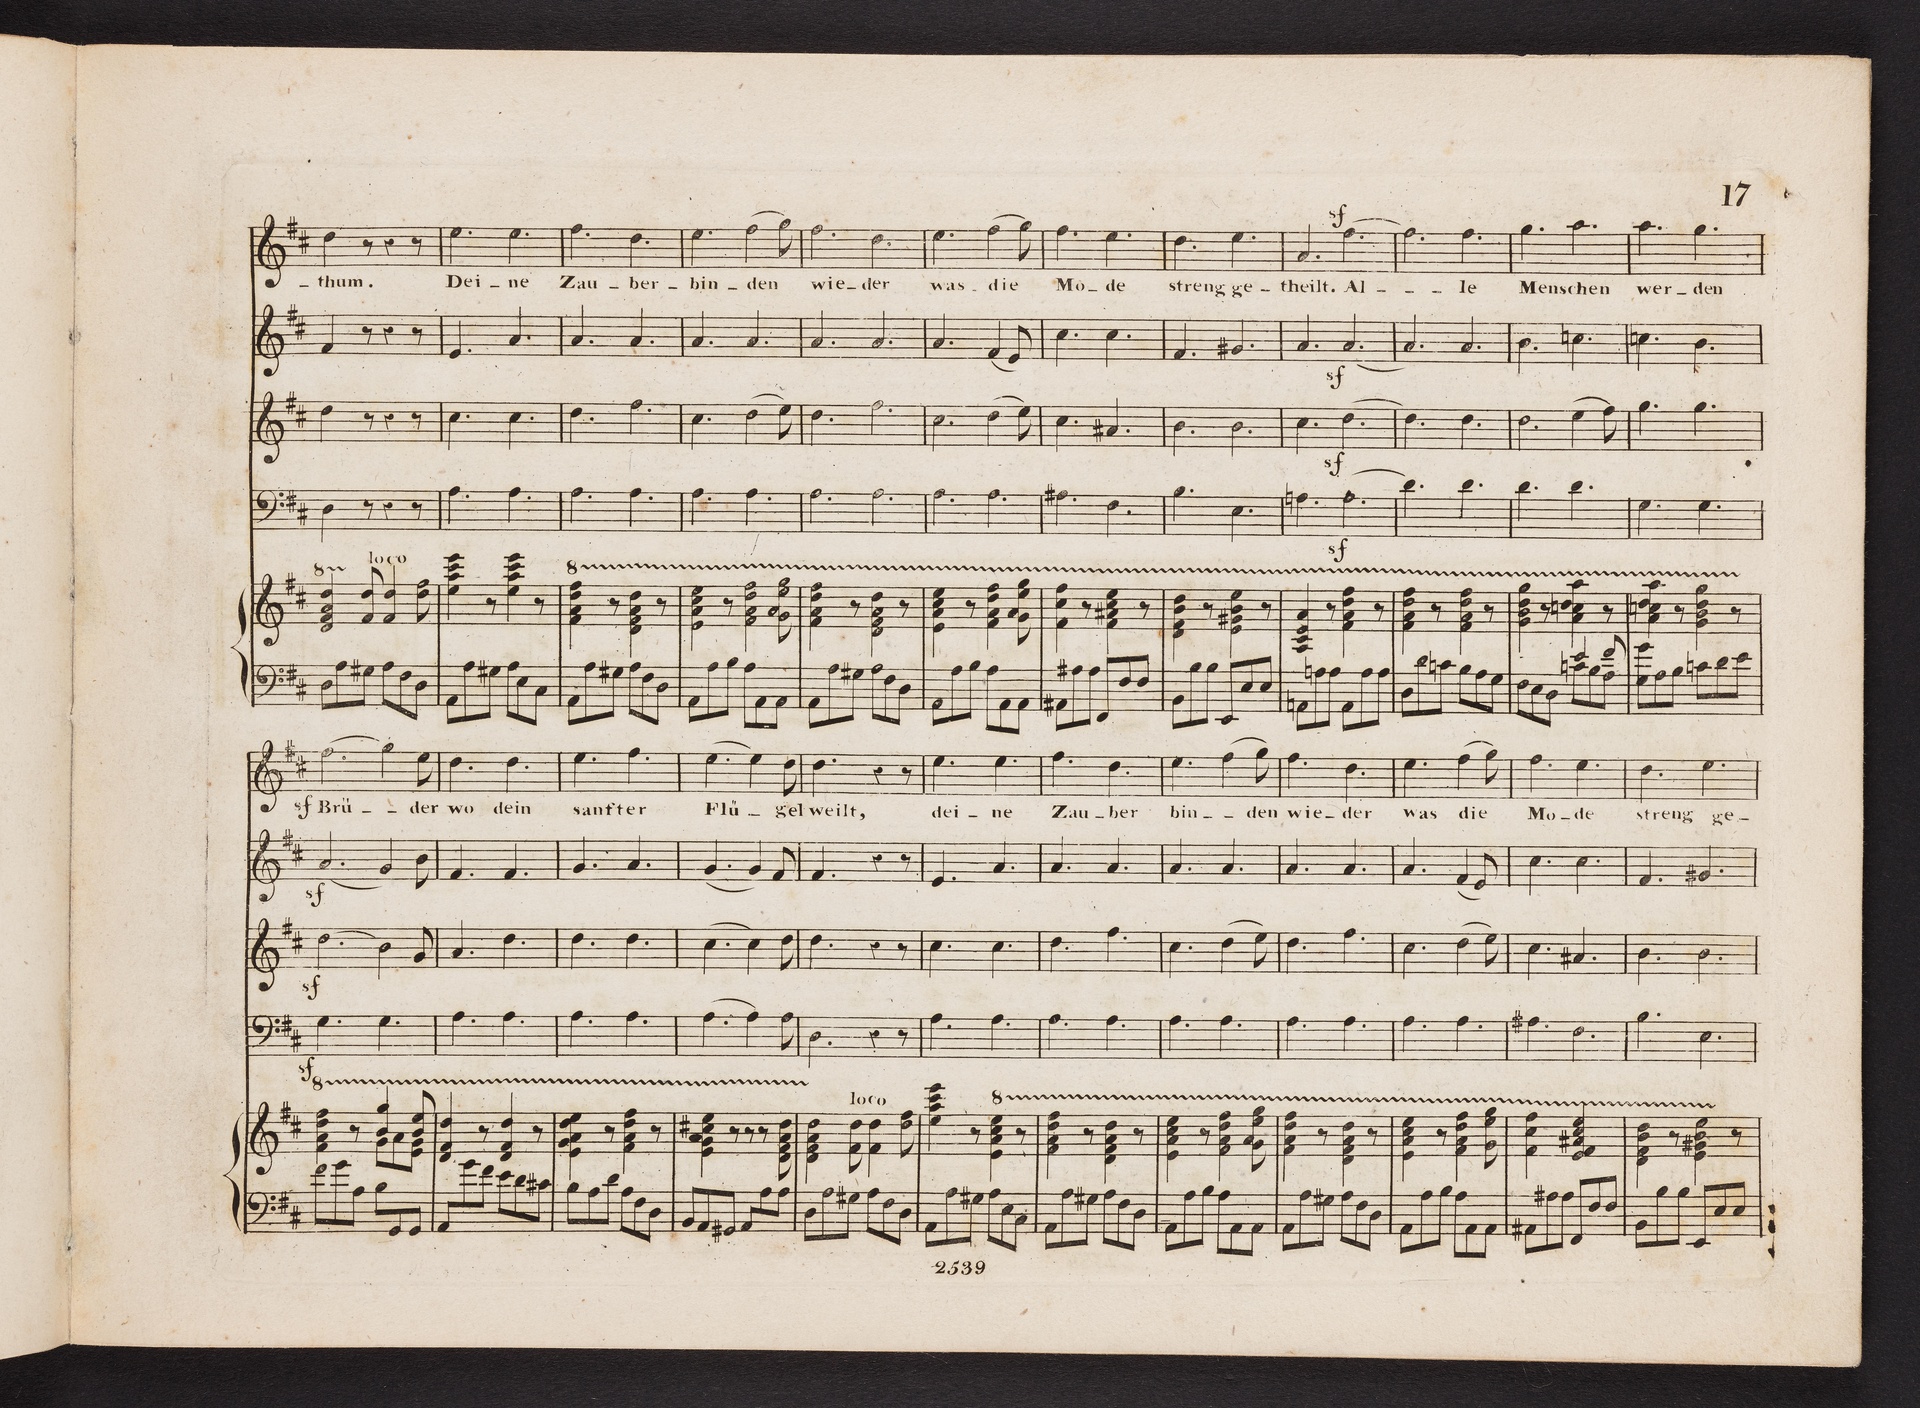 17
sf
_ thum. Dei _ ne Zau _ ber _ bin _ den wie _ der was _ die Mo _ de streng ge _ theilt. Al _ _ _ le Menschen wer _ den
sf
sf
sf
8 loco 8
sf Brü _ _ der wo dein sanfter Flü _ gel weilt, dei _ ne Zau _ ber bin _ _ den wie _ der was die Mo _ de streng ge _
sf
sf
sf
8 loco 8
2539